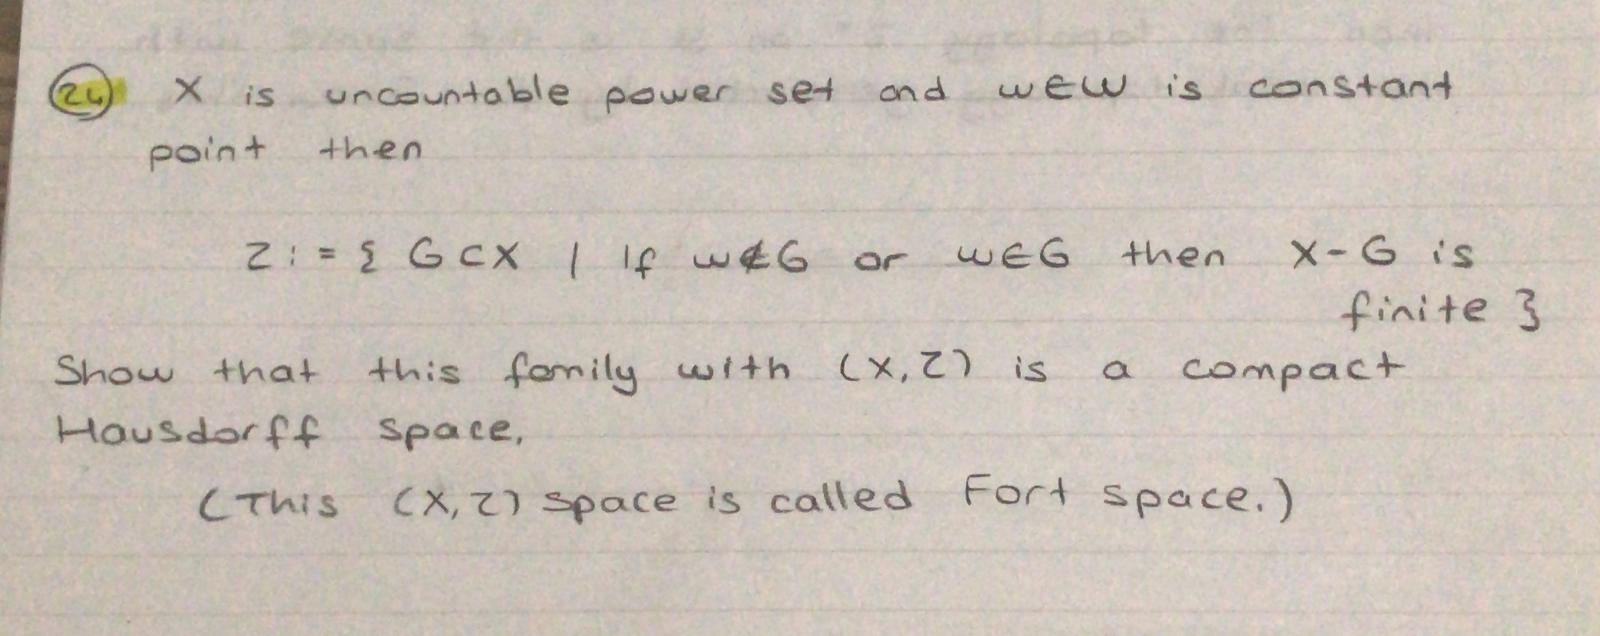 24 X is uncountable power set and w∈W is constant
point then
τ := { G ⊂ X | If w∉G or w∈G then X-G is
finite }
Show that this family with (X, τ) is a compact
Hausdorff space.
(This (X, τ) space is called Fort space.)